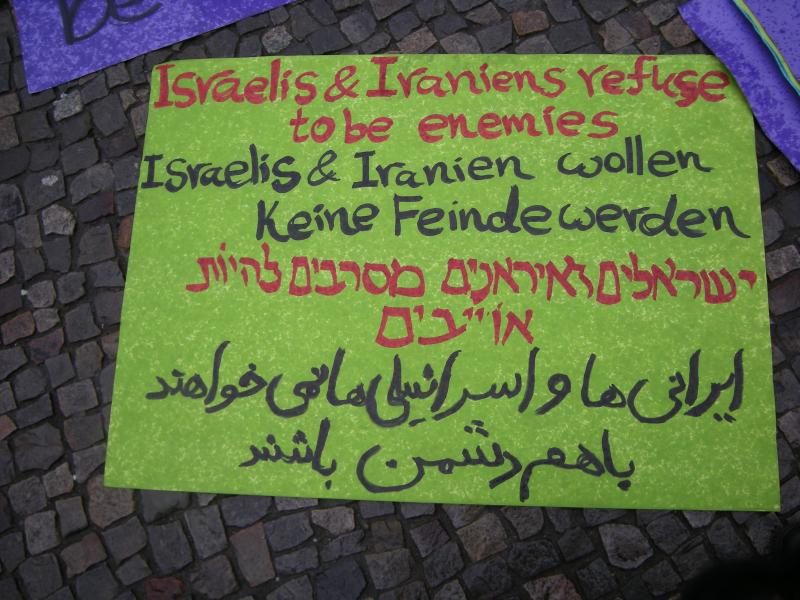 BE
Israelis & Iraniens refuse
to be enemies
Israelis & Iranien wollen
Keine Feinde werden
ישראלים ואיראנים מסרבים להיות
אוייבים
ایرانی ها و اسرائیلی ها نمی خواهند
باهم دشمن باشند